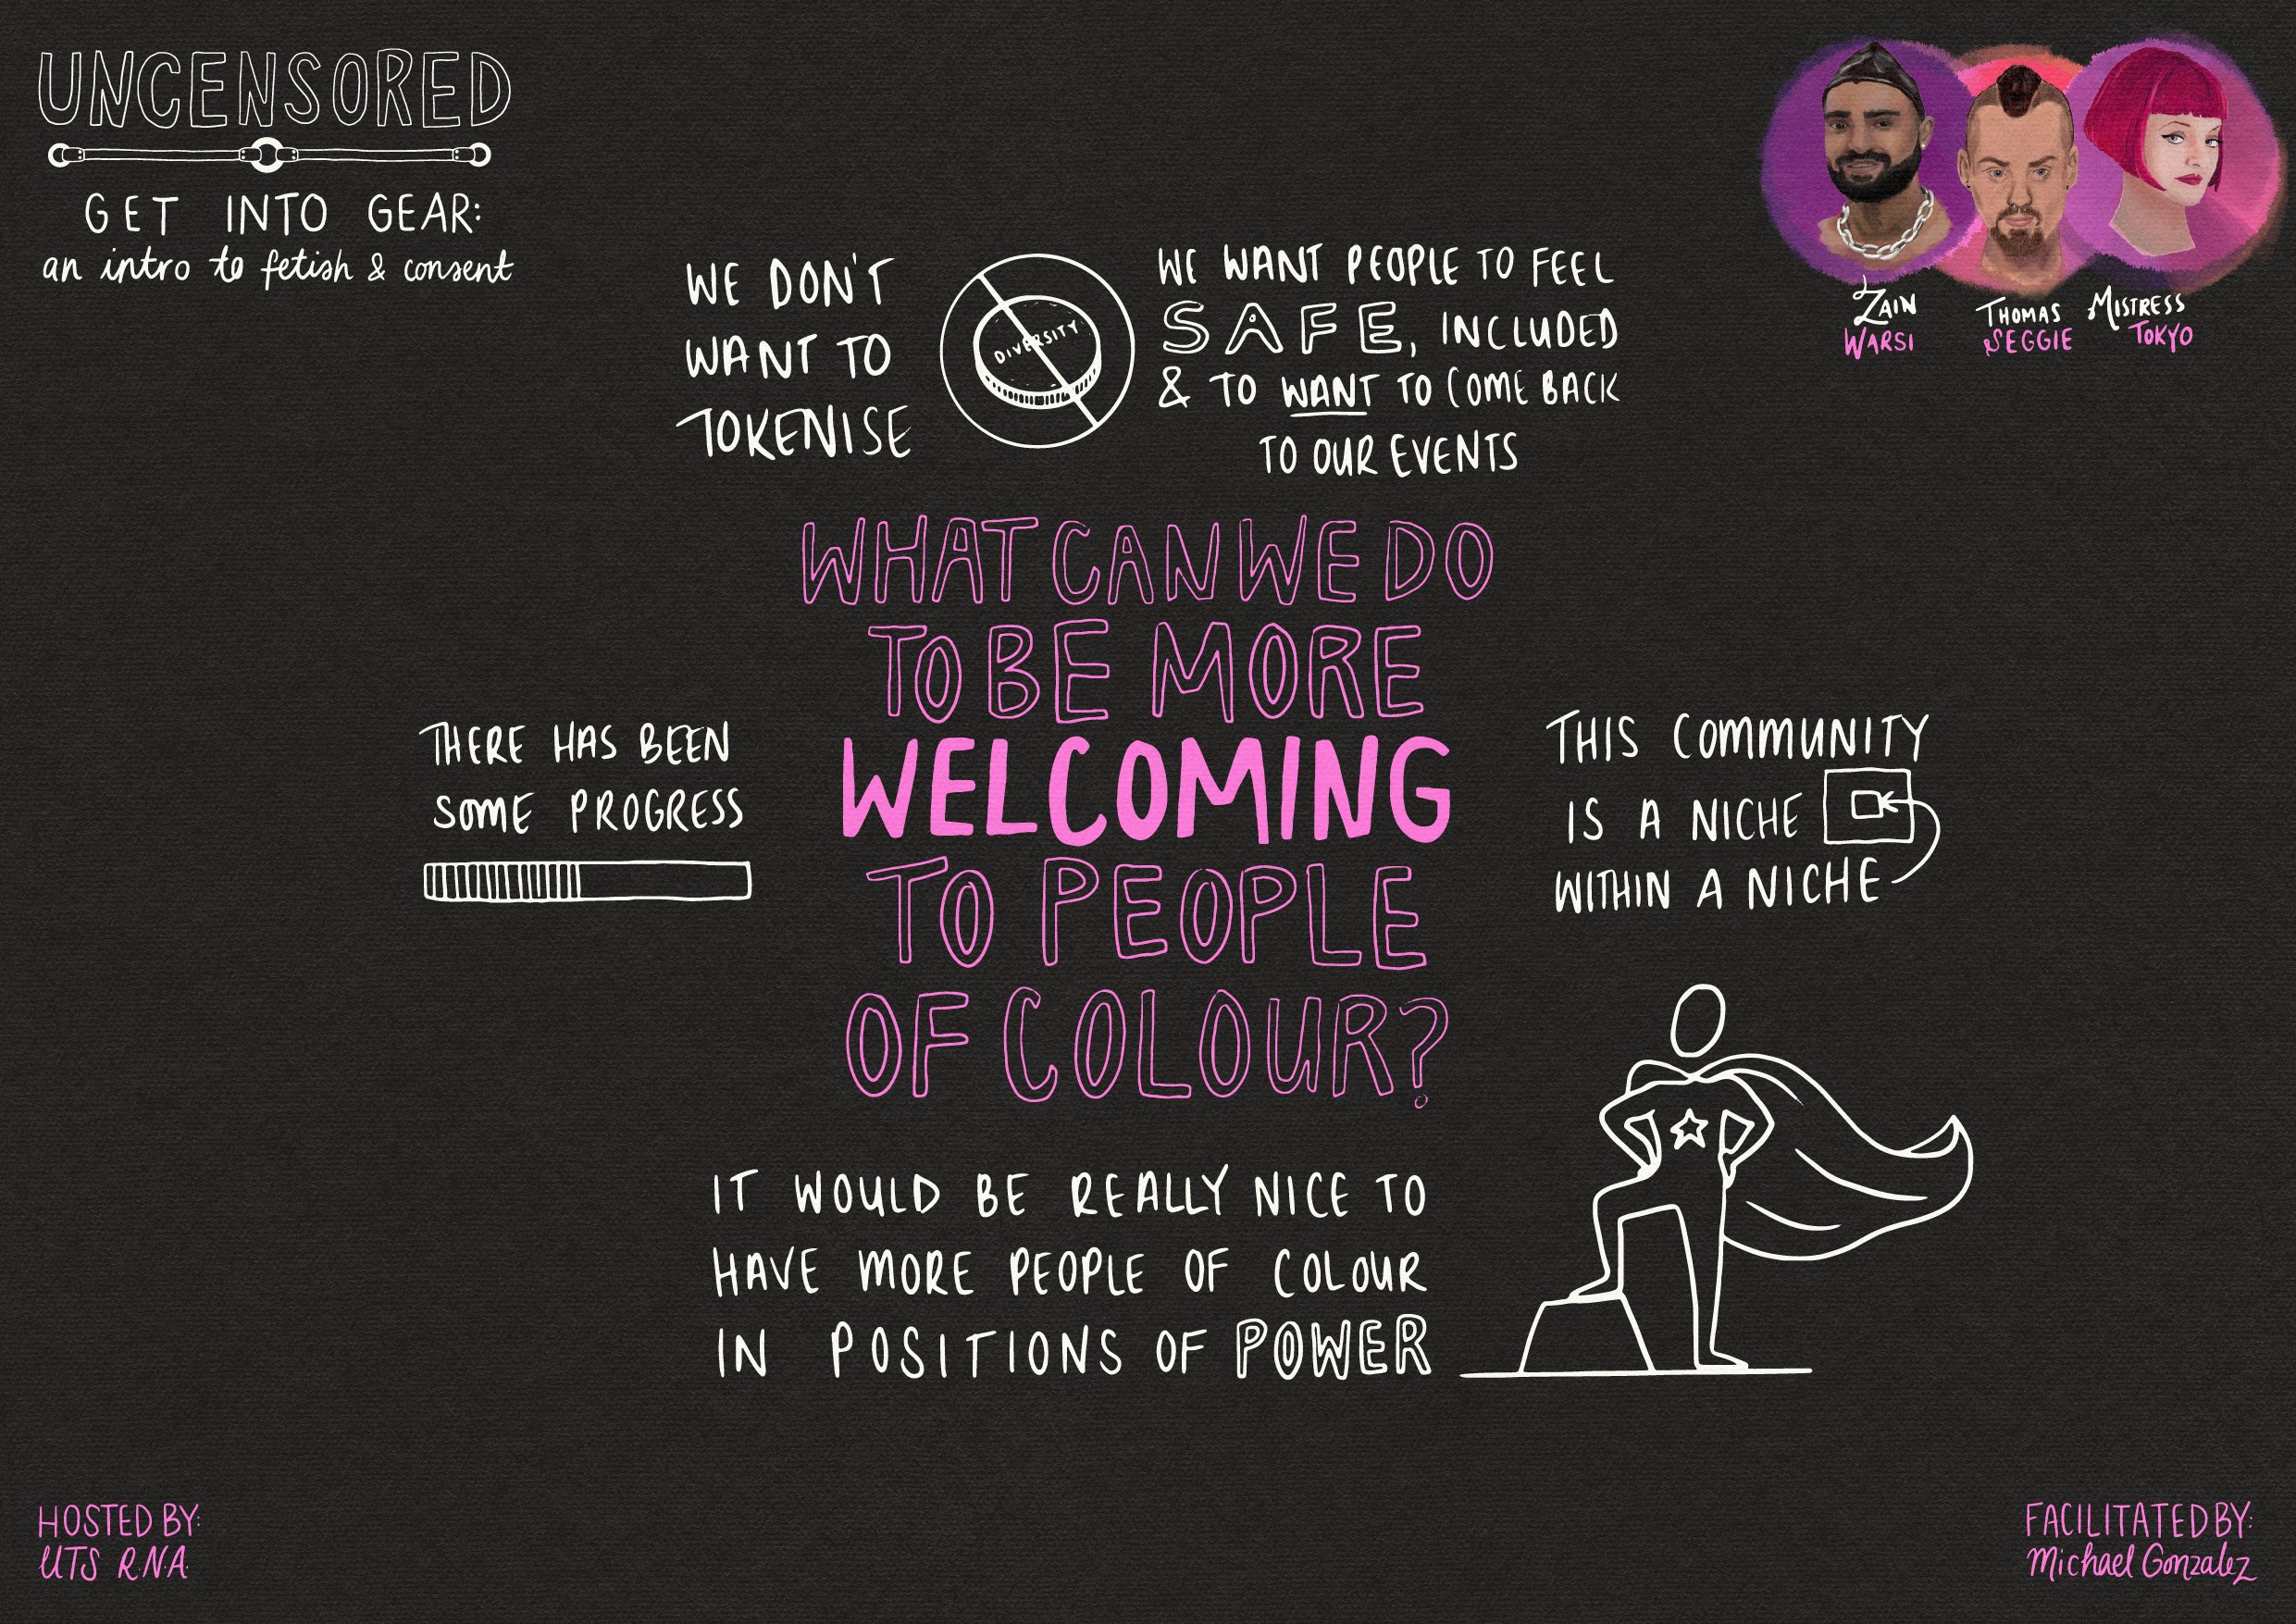 UNCENSORED
GET INTO GEAR:
an intro to fetish & consent
ZAIN
WARSI
THOMAS
SEGGIE
MISTRESS
TOKYO
WE DON'T
WANT TO
TOKENISE
DIVERSITY
WE WANT PEOPLE TO FEEL
SAFE, INCLUDED
& TO WANT TO COME BACK
TO OUR EVENTS
WHAT CAN WE DO
TO BE MORE
WELCOMING
TO PEOPLE
OF COLOUR?
THERE HAS BEEN
SOME PROGRESS
THIS COMMUNITY
IS A NICHE
WITHIN A NICHE
IT WOULD BE REALLY NICE TO
HAVE MORE PEOPLE OF COLOUR
IN POSITIONS OF POWER
HOSTED BY:
UTS R.N.A.
FACILITATED BY:
Michael Gonzalez